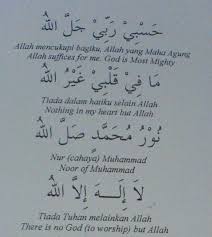 حَسْبِيْ رَبِّيْ جَلَّ اللهُ
Allah mencukupi bagiku, Allah yang Maha Agung
Allah suffices for me. God is Most Mighty
مَا فِيْ قَلْبِيْ غَيْرُ اللهُ
Tiada dalam hatiku selain Allah
Nothing in my heart but Allah
نُوْرُ مُحَمَّدٍ صَلَّ اللهُ
Nur (cahaya) Muhammad
Noor of Muhammad
لاَ إِلَــهَ إِلاَّ اللهُ
Tiada Tuhan melainkan Allah
There is no God (to worship) but Allah